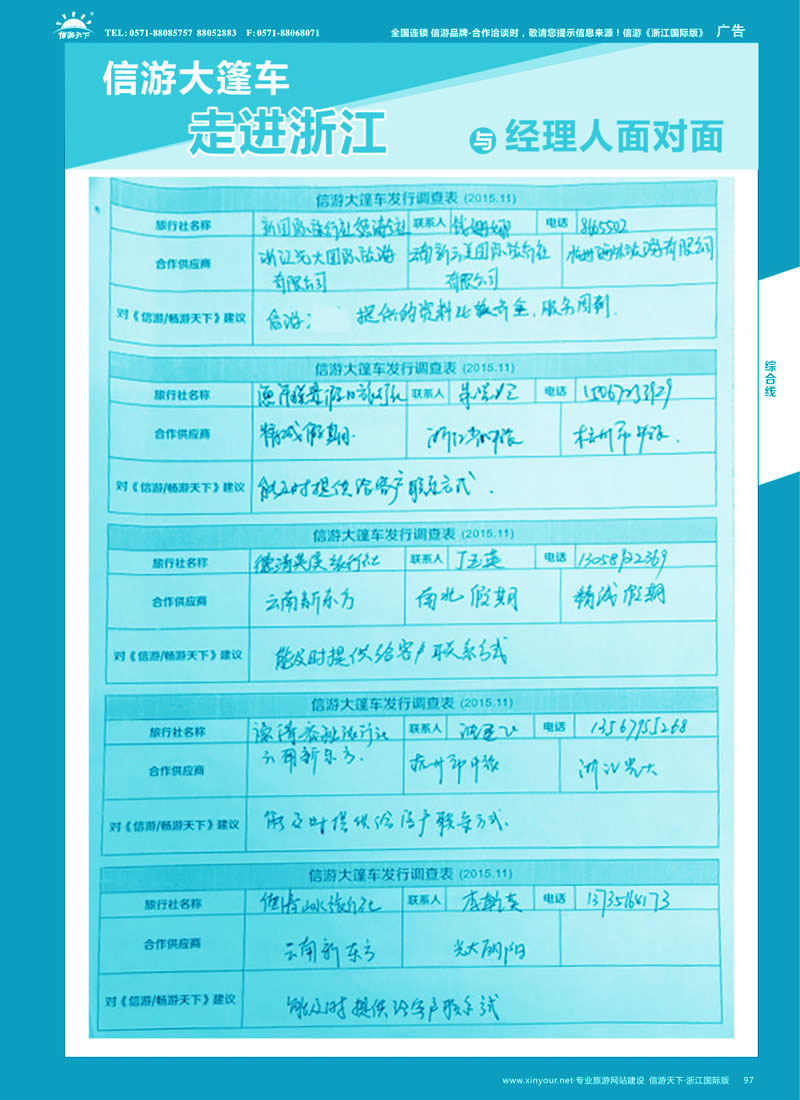 信游天下
TEL: 0571-88085757 88052883 F: 0571-88068071
全国连锁 信游品牌-合作洽谈时，敬请您提示信息来源！信游《浙江国际版》
广告
信游大篷车
走进浙江
与 经理人面对面
综合线
信游大篷车发行调查表 (2015.11)
旅行社名称 联系人 电话 8665502
合作供应商 浙江光大国际旅游有限公司 云南新云美国际旅行社有限公司 旅游有限公司
对《信游/畅游天下》建议 信游： 提供的资料比较齐全、服务周到.
信游大篷车发行调查表 (2015.11)
旅行社名称 联系人 电话
合作供应商 精诚假期. 浙江 杭州市中旅.
对《信游/畅游天下》建议 能及时提供给客户联系方式.
信游大篷车发行调查表 (2015.11)
旅行社名称 德清英溪旅行社 联系人 丁玉英 电话
合作供应商 云南新东方 南北假期 精诚假期
对《信游/畅游天下》建议 能及时提供给客户联系方式
信游大篷车发行调查表 (2015.11)
旅行社名称 联系人 电话 13567955268
合作供应商 云南新东方. 杭州市中旅 浙江光大
对《信游/畅游天下》建议 能及时提供给客户联系方式.
信游大篷车发行调查表 (2015.11)
旅行社名称 联系人 电话
合作供应商 云南新东方 光大
对《信游/畅游天下》建议 能及时提供给客户联系
www.xinyour.net·专业旅游网站建设 信游天下·浙江国际版 97